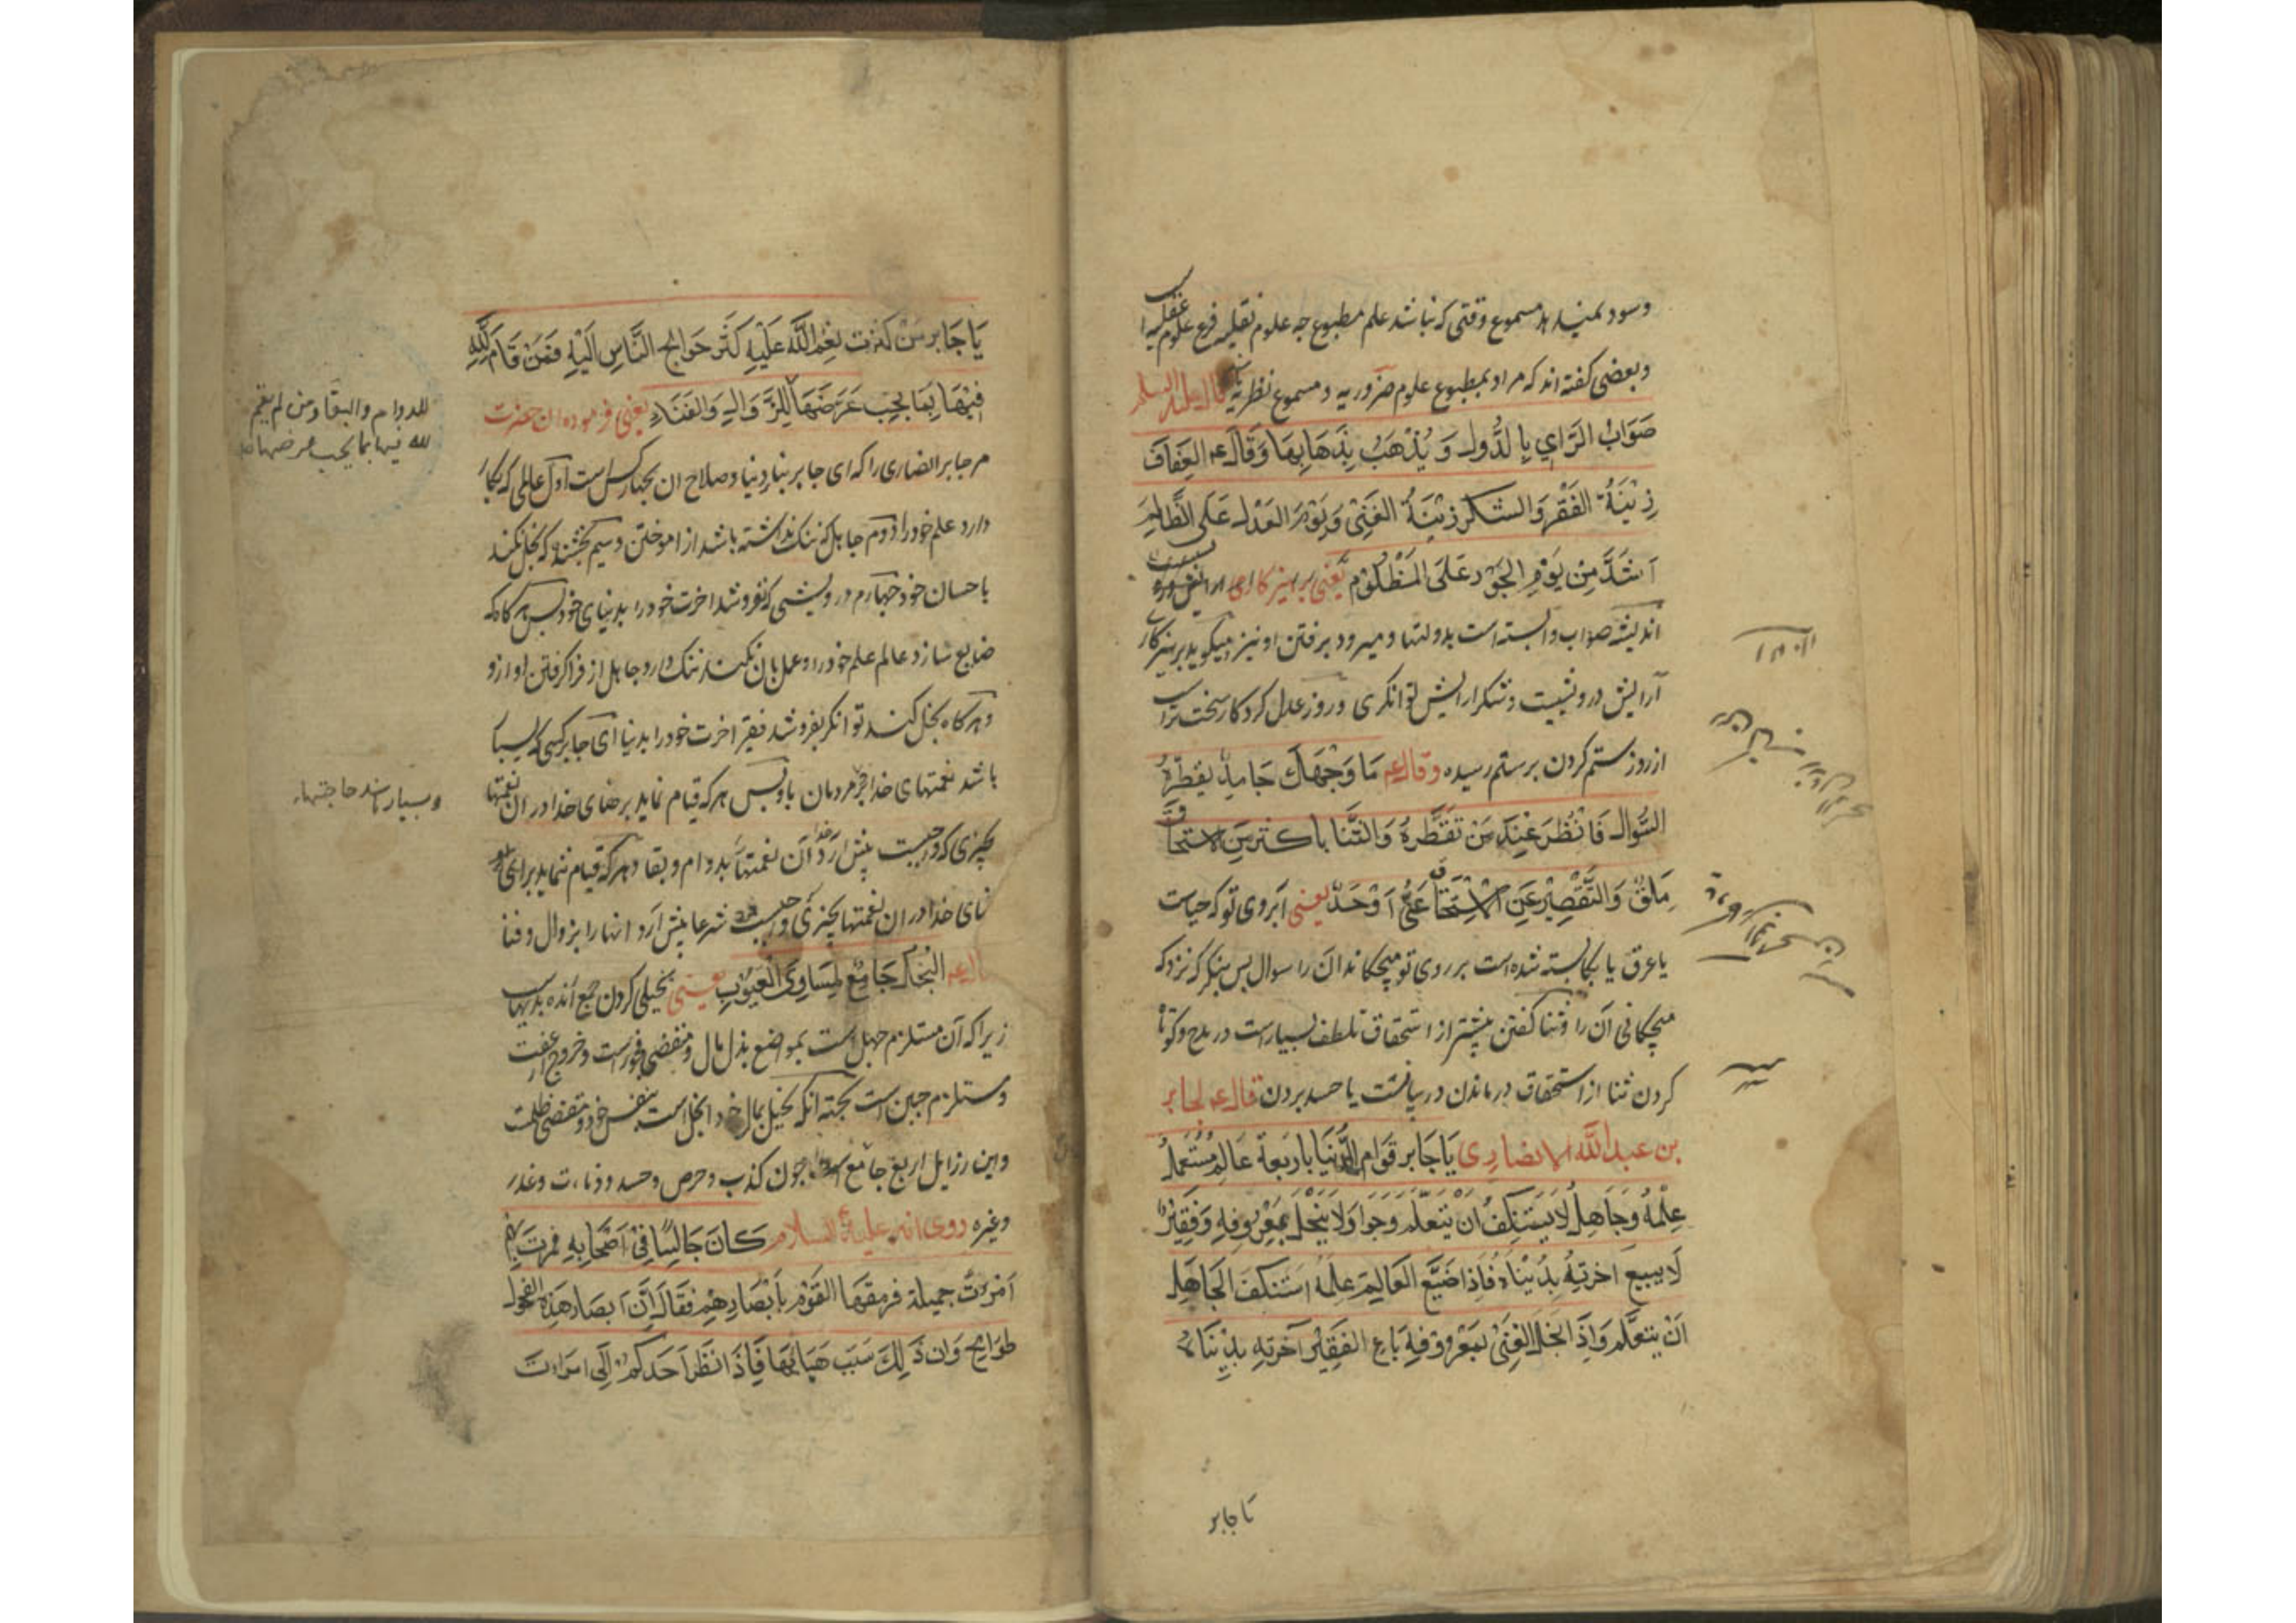 وسود نمیدهد مسموع وقتی که نباشد علم مطبوع چه علوم نقلیه فرع علوم عقلیه
وبعضی گفته اند که مراد بمطبوع علوم ضروریه و مسموع نظریه قال علیه السلم
صَوَابُ الرَّايِ بِالدُّوَلِ وَيُذْهَبُ بِذَهَابِهَا وَقَالَ ع العِفَافُ
زِيْنَةُ الفَقْرِ وَالشكر زِيْنَةُ الغِنٰى وَيَوْمُ العَدْلِ عَلَى الظَّالِمِ
اَشَدُّ مِنْ يَوْمِ الجَوْرِ عَلَى المَظْلُوْمِ یعنی
اندیشه صواب وابسته است بدولتها و میرود برفتن او نیز میگوید پرهیزکاری
آرایش درویشیست وشکر ارایش توانگری وروز عدل کردن سخت تراست
از روز ستم کردن بر ستم رسیده وقال ع مَا وَجْهِكَ جَامِدٌ يقطرهُ
السُّوالُ فَانْظُرْ عِنْدَ مَنْ تقطِّرهُ وَالثَّنَا باكثر مِنَ الاستحقاق
مَلَقٌ وَالتَّقْصِيْرُ عَنِ الْاِسْتِحْقَاقِ عَيٌّ اَوْ حَسَدٌ یعنی آبروی تو که حیاست
یا عرق یا بسته شده است بر روی تو میچکاند آن را سوال پس بنگر که نزد که
میچکانی آن را وثنا گفتن بیشتر از استحقاق تلطف بسیار است در مدح وکوتاه
کردن ثنا از استحقاق درماندن در بیانست یا حسد بردن قال ع لجابر
بن عبد الله الانصاری يَا جَابِر قوام الدُّنْيَا باربَعة عَالِم مُسْتَعْمِل
عِلْمَهُ وَجَاهِل لَا يَسْتَنْكِفُ اَنْ يَتَعَلَّمَ وَجَوَاد لَا يَبْخَل بِمَعْرُوفِه وَفَقِيْر
لَا يبيع آخرتهُ بِدُنْيَاه فَاِذَا ضَيَّعَ العَالِم عِلمَهُ اسْتَنْكَفَ الجَاهِل
اَنْ يتعَلَّم وَاِذَا بخل الغَنِىّ بمَعْروفِه بَاعَ الفَقِيْر آخرتهِ بِدُنْيَاهُ
یا جابر
يَا جَابِر مَنْ كثرت نِعَمُ اللّٰه عَلَيْهِ كَثُرَ حَوَايج النَّاسِ اِلَيْهِ فَمَنْ قَامَ لِلّٰهِ
فِيْهَا بِمَا يَجِب عَرَضَهَا لِلزَّوَالِ وَالفَنَاءِ یعنی فرموده ان حضرت
للدوام والبقا ومن لم يقم
لله فيها بما يجب عرضها
مر جابر انصاری را که ای جابر بنای دنیا وصلاح ان بچهار کس است اول عالمی که بکار
دارد علم خود را دوم جاهل که ننگ نداشته باشد از اموختن وسیم بخشنده که بخل نکند
باحسان خود چهارم درویشی که نفروشد اخرت خود را بدنیای خود پس هرگاه که
ضایع سازد عالم علم خود را وعمل بان نکند ننگ دارد جاهل از فراگرفتن او ازو
وهرگاه بخل کند توانگر بفروشد فقیر اخرت خود را بدنیا ای جابر کسی که بسیار
باشد نعمتهای خدا مردمان باو پس هر که قیام نماید برضای خدا در ان نعمتها
وبسیار باشد حاجتهاء
بچیزی که واجبست پیش آرد آن نعمتها بدوام وبقا وهر که قیام ننماید برای
خدا در ان نعمتها بچیزی که واجبست شرعا پیش آرد انها را بزوال وفنا
قال ع البُخْلُ جَامِعٌ لِمَسَاوِى العُيُوْبِ یعنی بخیلی کردن جمع آنده بدیهاست
زیرا که آن مستلزم جهل است بمواضع بذل مال ومقتضی فجور است وخروج از عفت
ومستلزم جبن است بجهته آنکه بخیل بمال خود ابخل است بنفس خود ومقتضی ظلمت
واین رزایل اربع جامع چون کذب وحرص وحسد ودناءت وغدر
وغیره روی انه علیه السلام كَانَ جَالِسًا فِىْ اَصْحَابِهِ فمرت بهم
اَمْرَءَتٌ جميلة فرمقهَا القَوْمُ بِاَبْصَارِهِمْ فقَالَ اِنَّ اَبصَار هَذِهِ الفحول
طوَامح وَان ذَلِكَ سَبَب هِبَابِهَا فَاِذَا نَظَرَ اَحَدكم اِلَى امرات